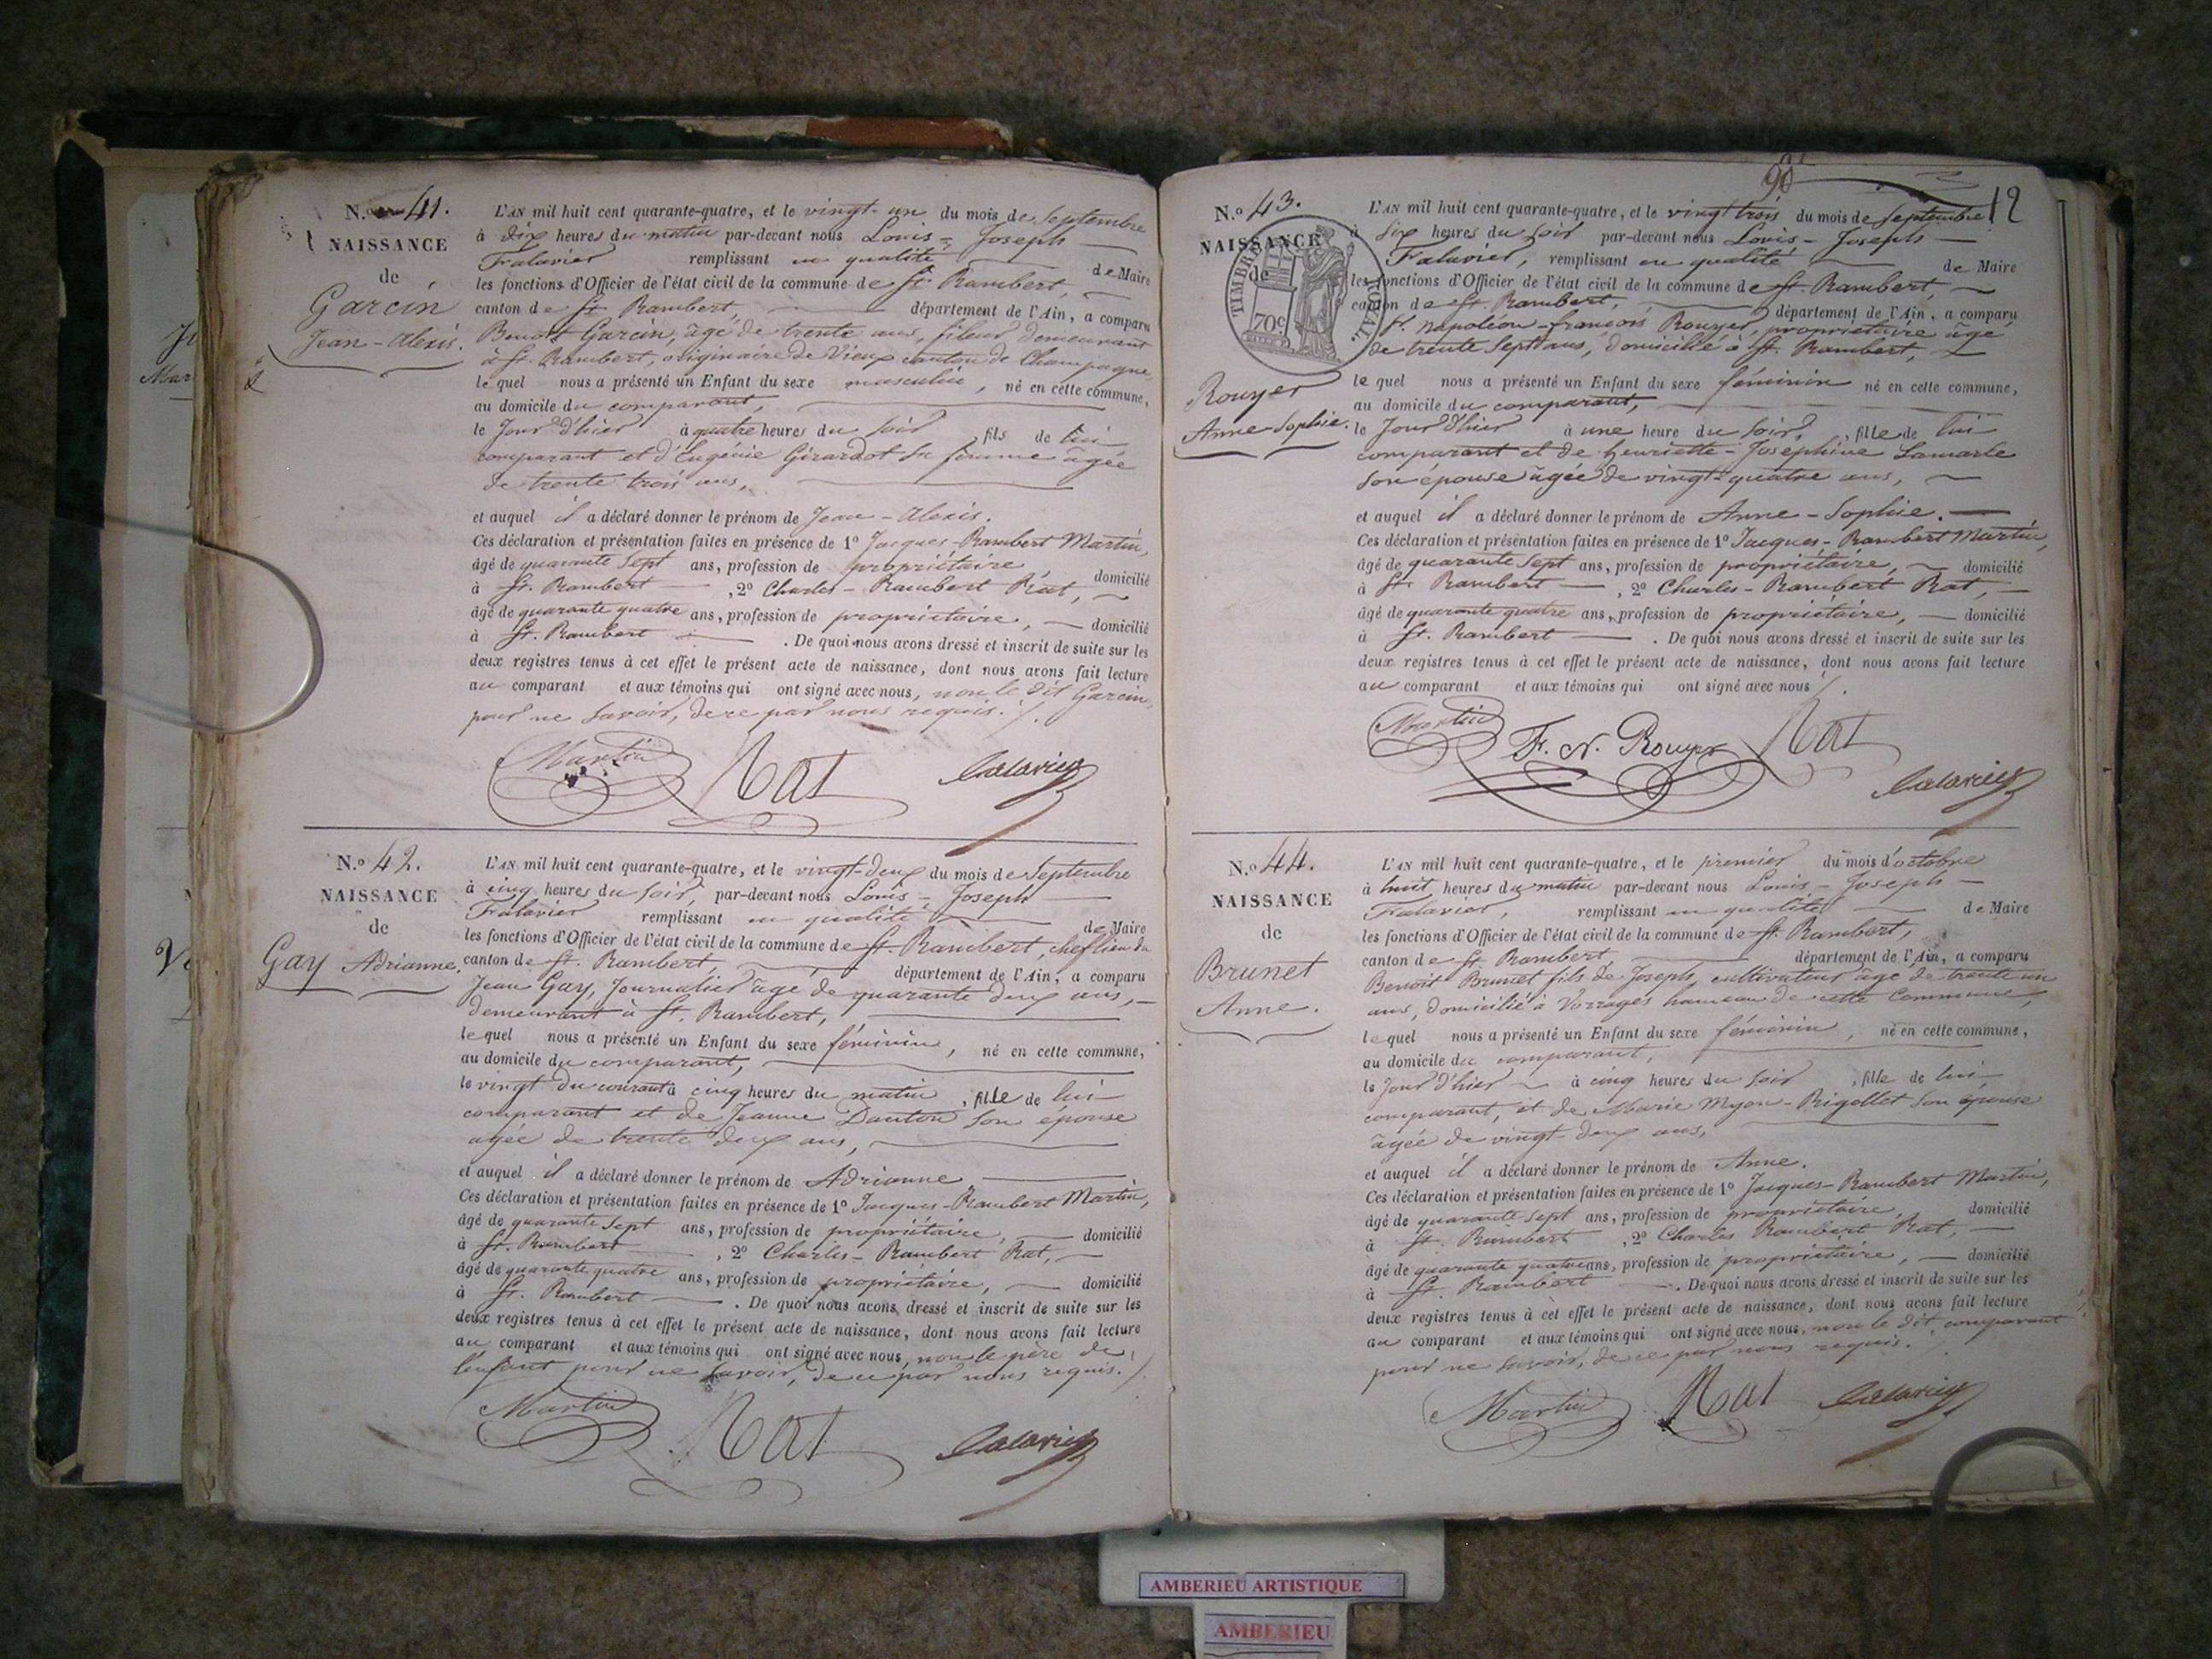 N.º 41.
NAISSANCE
de
Garcin
Jean-Alexis.
L'AN mil huit cent quarante-quatre, et le vingt-un du mois de Septembre
à dix heures du matin par-devant nous Louis-Joseph
Falavier remplissant en qualité de Maire
les fonctions d'Officier de l'état civil de la commune de St. Rambert,
canton de St. Rambert, département de l'Ain, a comparu
Benoit Garcin, âgé de trente ans, fileur demeurant
à St. Rambert, originaire de Vieux canton de Champagne,
lequel nous a présenté un Enfant du sexe masculin, né en cette commune,
au domicile du comparant,
le Jour d'hier à quatre heures du soir, fils de lui
comparant et d'Eugénie Girardot sa femme âgée
de trente trois ans,
et auquel il a déclaré donner le prénom de Jean-Alexis.
Ces déclaration et présentation faites en présence de 1º Jacques-Rambert Martin,
âgé de quarante Sept ans, profession de propriétaire, domicilié
à St. Rambert, 2º Charles-Rambert Rat,
âgé de quarante quatre ans, profession de propriétaire, domicilié
à St. Rambert. De quoi nous avons dressé et inscrit de suite sur les
deux registres tenus à cet effet le présent acte de naissance, dont nous avons fait lecture
au comparant et aux témoins qui ont signé avec nous, non le dit Garcin,
pour ne savoir, de ce par nous requis ./.
Martin Rat Falavier
N.º 42.
NAISSANCE
de
Gay Adrianne.
L'AN mil huit cent quarante-quatre, et le vingt-deux du mois de Septembre
à cinq heures du soir, par-devant nous Louis-Joseph
Falavier remplissant en qualité de Maire
les fonctions d'Officier de l'état civil de la commune de St. Rambert, chef lieu du
canton de St. Rambert, département de l'Ain, a comparu
Jean Gay, Journalier âgé de quarante deux ans,
demeurant à St. Rambert,
lequel nous a présenté un Enfant du sexe féminin, né en cette commune,
au domicile du comparant,
le vingt du courant à cinq heures du matin, fille de lui
comparant et de Jeanne Danton son épouse
agée de trente deux ans,
et auquel il a déclaré donner le prénom de Adrianne
Ces déclaration et présentation faites en présence de 1º Jacques-Rambert Martin,
âgé de quarante Sept ans, profession de propriétaire, domicilié
à St. Rambert, 2º Charles-Rambert Rat,
âgé de quarante quatre ans, profession de propriétaire, domicilié
à St. Rambert. De quoi nous avons dressé et inscrit de suite sur les
deux registres tenus à cet effet le présent acte de naissance, dont nous avons fait lecture
au comparant et aux témoins qui ont signé avec nous, non le père de
l'enfant pour ne savoir, de ce par nous requis ./.
Martin Rat Falavier
90
12
N.º 43.
NAISSANCE
de
TIMBRE ROYAL.
70c
Rouyer
Anne-Sophie.
L'AN mil huit cent quarante-quatre, et le vingt trois du mois de Septembre
à Six heures du soir par-devant nous Louis-Joseph
Falavier, remplissant en qualité de Maire
les fonctions d'Officier de l'état civil de la commune de St. Rambert,
canton de St. Rambert, département de l'Ain, a comparu
Sr. napoléon-francois Rouyer, propriétaire âgé
de trente Sept ans, domicilié à St. Rambert,
lequel nous a présenté un Enfant du sexe féminin né en cette commune,
au domicile du comparant,
le Jour d'hier à une heure du soir, fille de lui
comparant et de henriette-Joséphine Lamarle
son épouse âgée de vingt-quatre ans,
et auquel il a déclaré donner le prénom de Anne-Sophie.
Ces déclaration et présentation faites en présence de 1º Jacques-Rambert Martin,
âgé de quarante Sept ans, profession de propriétaire, domicilié
à St. Rambert, 2º Charles-Rambert Rat,
âgé de quarante quatre ans, profession de propriétaire, domicilié
à St. Rambert. De quoi nous avons dressé et inscrit de suite sur les
deux registres tenus à cet effet le présent acte de naissance, dont nous avons fait lecture
au comparant et aux témoins qui ont signé avec nous ./.
Martin F. N. Rouyer Rat
Falavier
N.º 44.
NAISSANCE
de
Brunet
Anne.
L'AN mil huit cent quarante-quatre, et le premier du mois d'octobre
à huit heures du matin par-devant nous Louis-Joseph
Falavier, remplissant en qualité de Maire
les fonctions d'Officier de l'état civil de la commune de St. Rambert,
canton de St. Rambert, département de l'Ain, a comparu
Benoit Brunet fils de Joseph, cultivateur âgé de trente un
ans, domicilié à Vorrages hameau de cette Commune,
lequel nous a présenté un Enfant du sexe féminin, né en cette commune,
au domicile du comparant,
le Jour d'hier à cinq heures du soir, fille de lui
comparant, et de Marie Myon-Rigollet son épouse
âgée de vingt-deux ans,
et auquel il a déclaré donner le prénom de Anne.
Ces déclaration et présentation faites en présence de 1º Jacques-Rambert Martin,
âgé de quarante-sept ans, profession de propriétaire, domicilié
à St. Rambert, 2º Charles Rambert Rat,
âgé de quarante quatre ans, profession de propriétaire, domicilié
à St. Rambert. De quoi nous avons dressé et inscrit de suite sur les
deux registres tenus à cet effet le présent acte de naissance, dont nous avons fait lecture
au comparant et aux témoins qui ont signé avec nous, non le dit comparant
pour ne savoir, de ce par nous requis.
Martin Rat Falavier
AMBERIEU ARTISTIQUE
AMBERIEU